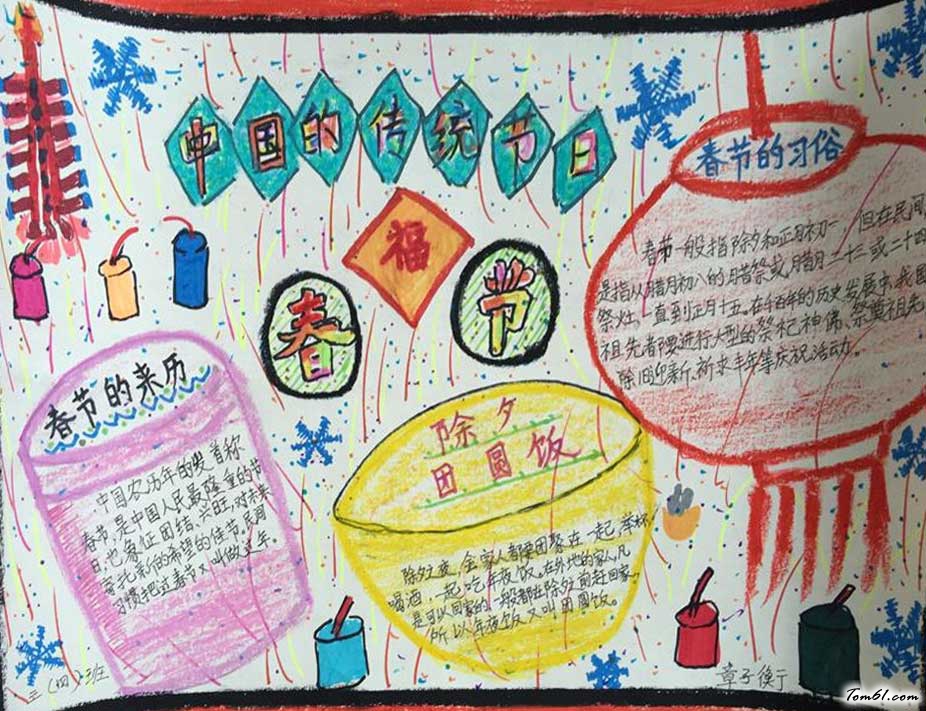 中国的传统节日
福
春节
春节的习俗
春节一般指除夕和正月初一 但在民间
是指从腊月初八的腊祭或腊月二十三或二十四
祭灶,一直到正月十五。在千百年的历史发展中,我国
祖先者都要进行大型的祭祀神佛、祭奠祖先
除旧迎新、祈求丰年等庆祝活动。
春节的来历
中国农历年的岁首称
春节,是中国人民最隆重的节
日,也象征团结、兴旺,对未来
寄托新的希望的佳节。民间
习惯把过春节又叫做过年。
除夕
团圆饭
除夕之夜,全家人都要团聚在一起,举杯
喝酒,一起吃年夜饭。在外地的家人,凡
是可以回家的一般都在除夕前赶回家。
所以年夜饭又叫团圆饭。
三(四)班
章子衡
Tom61.com